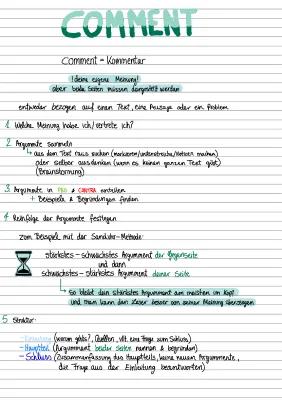 COMMENT
Comment = Kommentar
!deine eigene Meinung!
aber beide Seiten müssen dargestellt werden
entweder bezogen auf einen Text, eine Aussage oder ein Problem
1. Welche Meinung habe ich/vertrete ich?
2. Argumente sammeln
↳ aus dem Text raus suchen (markieren/unterstreichen/Notizen machen)
oder selber ausdenken (wenn es keinen ganzen Text gibt)
(Brainstorming)
3. Argumente in PRO & CONTRA einteilen
+ Beispiele & Begründungen finden
4. Reihenfolge der Argumente festlegen
zum Beispiel mit der Sanduhr-Methode:
stärkstes - schwächstes Argument der Gegenseite
und dann
schwächstes - stärkstes Argument deiner Seite
↳ so bleibt dein stärkstes Argument am meisten im Kopf
und man kann den Leser besser von seiner Meinung überzeugen
5. Struktur:
- Einleitung (worum gehts?, Quellen, vlt. eine Frage zum Schluss)
- Hauptteil (Argumente beider Seiten nennen & begründen)
- Schluss (Zusammenfassung des Hauptteils, keine neuen Argumente,
die Frage aus der Einleitung beantworten)